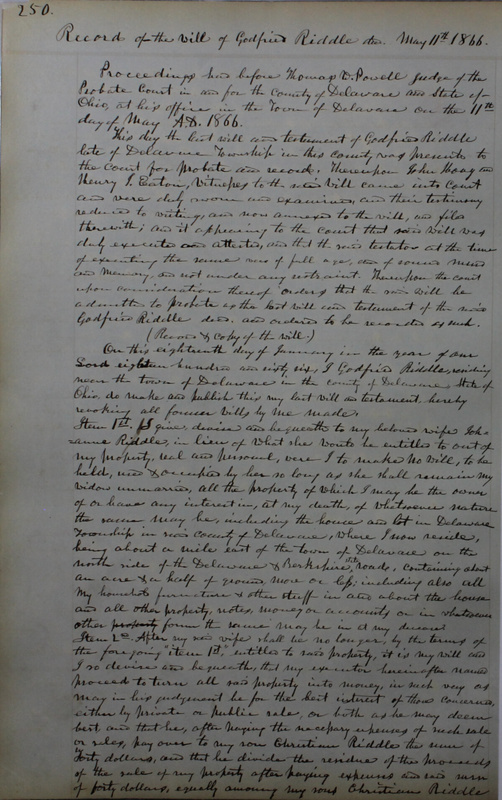 250.
Record of the will of Godfried Riddle dec. May 11th 1866.
Proceedings had before Thomas W. Powell Judge of the
Probate Court in and for the County of Delaware and State of
Ohio, at his office in the Town of Delaware on the 11th
day of May A.D. 1866.
This day the last will and testament of Godfried Riddle
late of Delaware Township in this county was presented to
the Court for Probate and record. Thereupon John Hoag and
Henry S. Eaton, Witnesses to the said Will came into Court
and were duly sworn and examined, and their testimony
reduced to writing, and now annexed to the will, and filed
therewith; and it appearing to the Court that said Will was
duly executed and attested, and that the said testator at the time
of executing the same was of full age, and of sound mind
and memory, and not under any restraint. Thereupon the court
upon consideration thereof orders that the said will be
admitted to probate as the last will and testament of the said
Godfried Riddle decd. and ordered to be recorded as such.
(Record & Copy of the will.)
On this eighteenth day of January in the year of our
Lord eighteen hundred and sixty six, I Godfried Riddle, residing
near the town of Delaware in the county of Delaware State of
Ohio do make and publish this my last will and testament, hereby
revoking all former Wills by me made.
Item 1st. I give devise and bequeath to my beloved wife
anna Riddle, in lieu of what she would be entitled to out of
my property, real and personal, were I to make no will, to be
held, used & occupied by her so long as she shall remain my
widow unmarried, all the property of which I may be the owner
of or have any interest in, at my death, of whatsoever nature
the same may be, including the house and lot in Delaware
Township in said county of Delaware, where I now reside,
being about a mile east of the town of Delaware on the
north side of the Delaware & Berkshire roads, containing about
an acre & a half of ground, more or less; including also all
my household furniture & other stuff in and about the house
and all other property, notes, money or accounts or in whatsoever
other property form the same may be in at my decease
Item 2d. After my said wife shall be no longer, by the terms of
the foregoing "item 1st," entitled to said property, it is my will and
I so devise and bequeath, that my executor hereinafter named
proceed to turn all said property into money, in such way as
may in his judgement be for the best interest of those concerned,
either by private or public sale, or both as he may deem
best and that he, after paying the necessary expenses of such sale
or sales, pay over to my son Christian Riddle the sum of
forty dollars, and that he divide the residue of the proceeds
of the sale of my property after paying expenses and said sum
of forty dollars, equally among my sons Christian Riddle